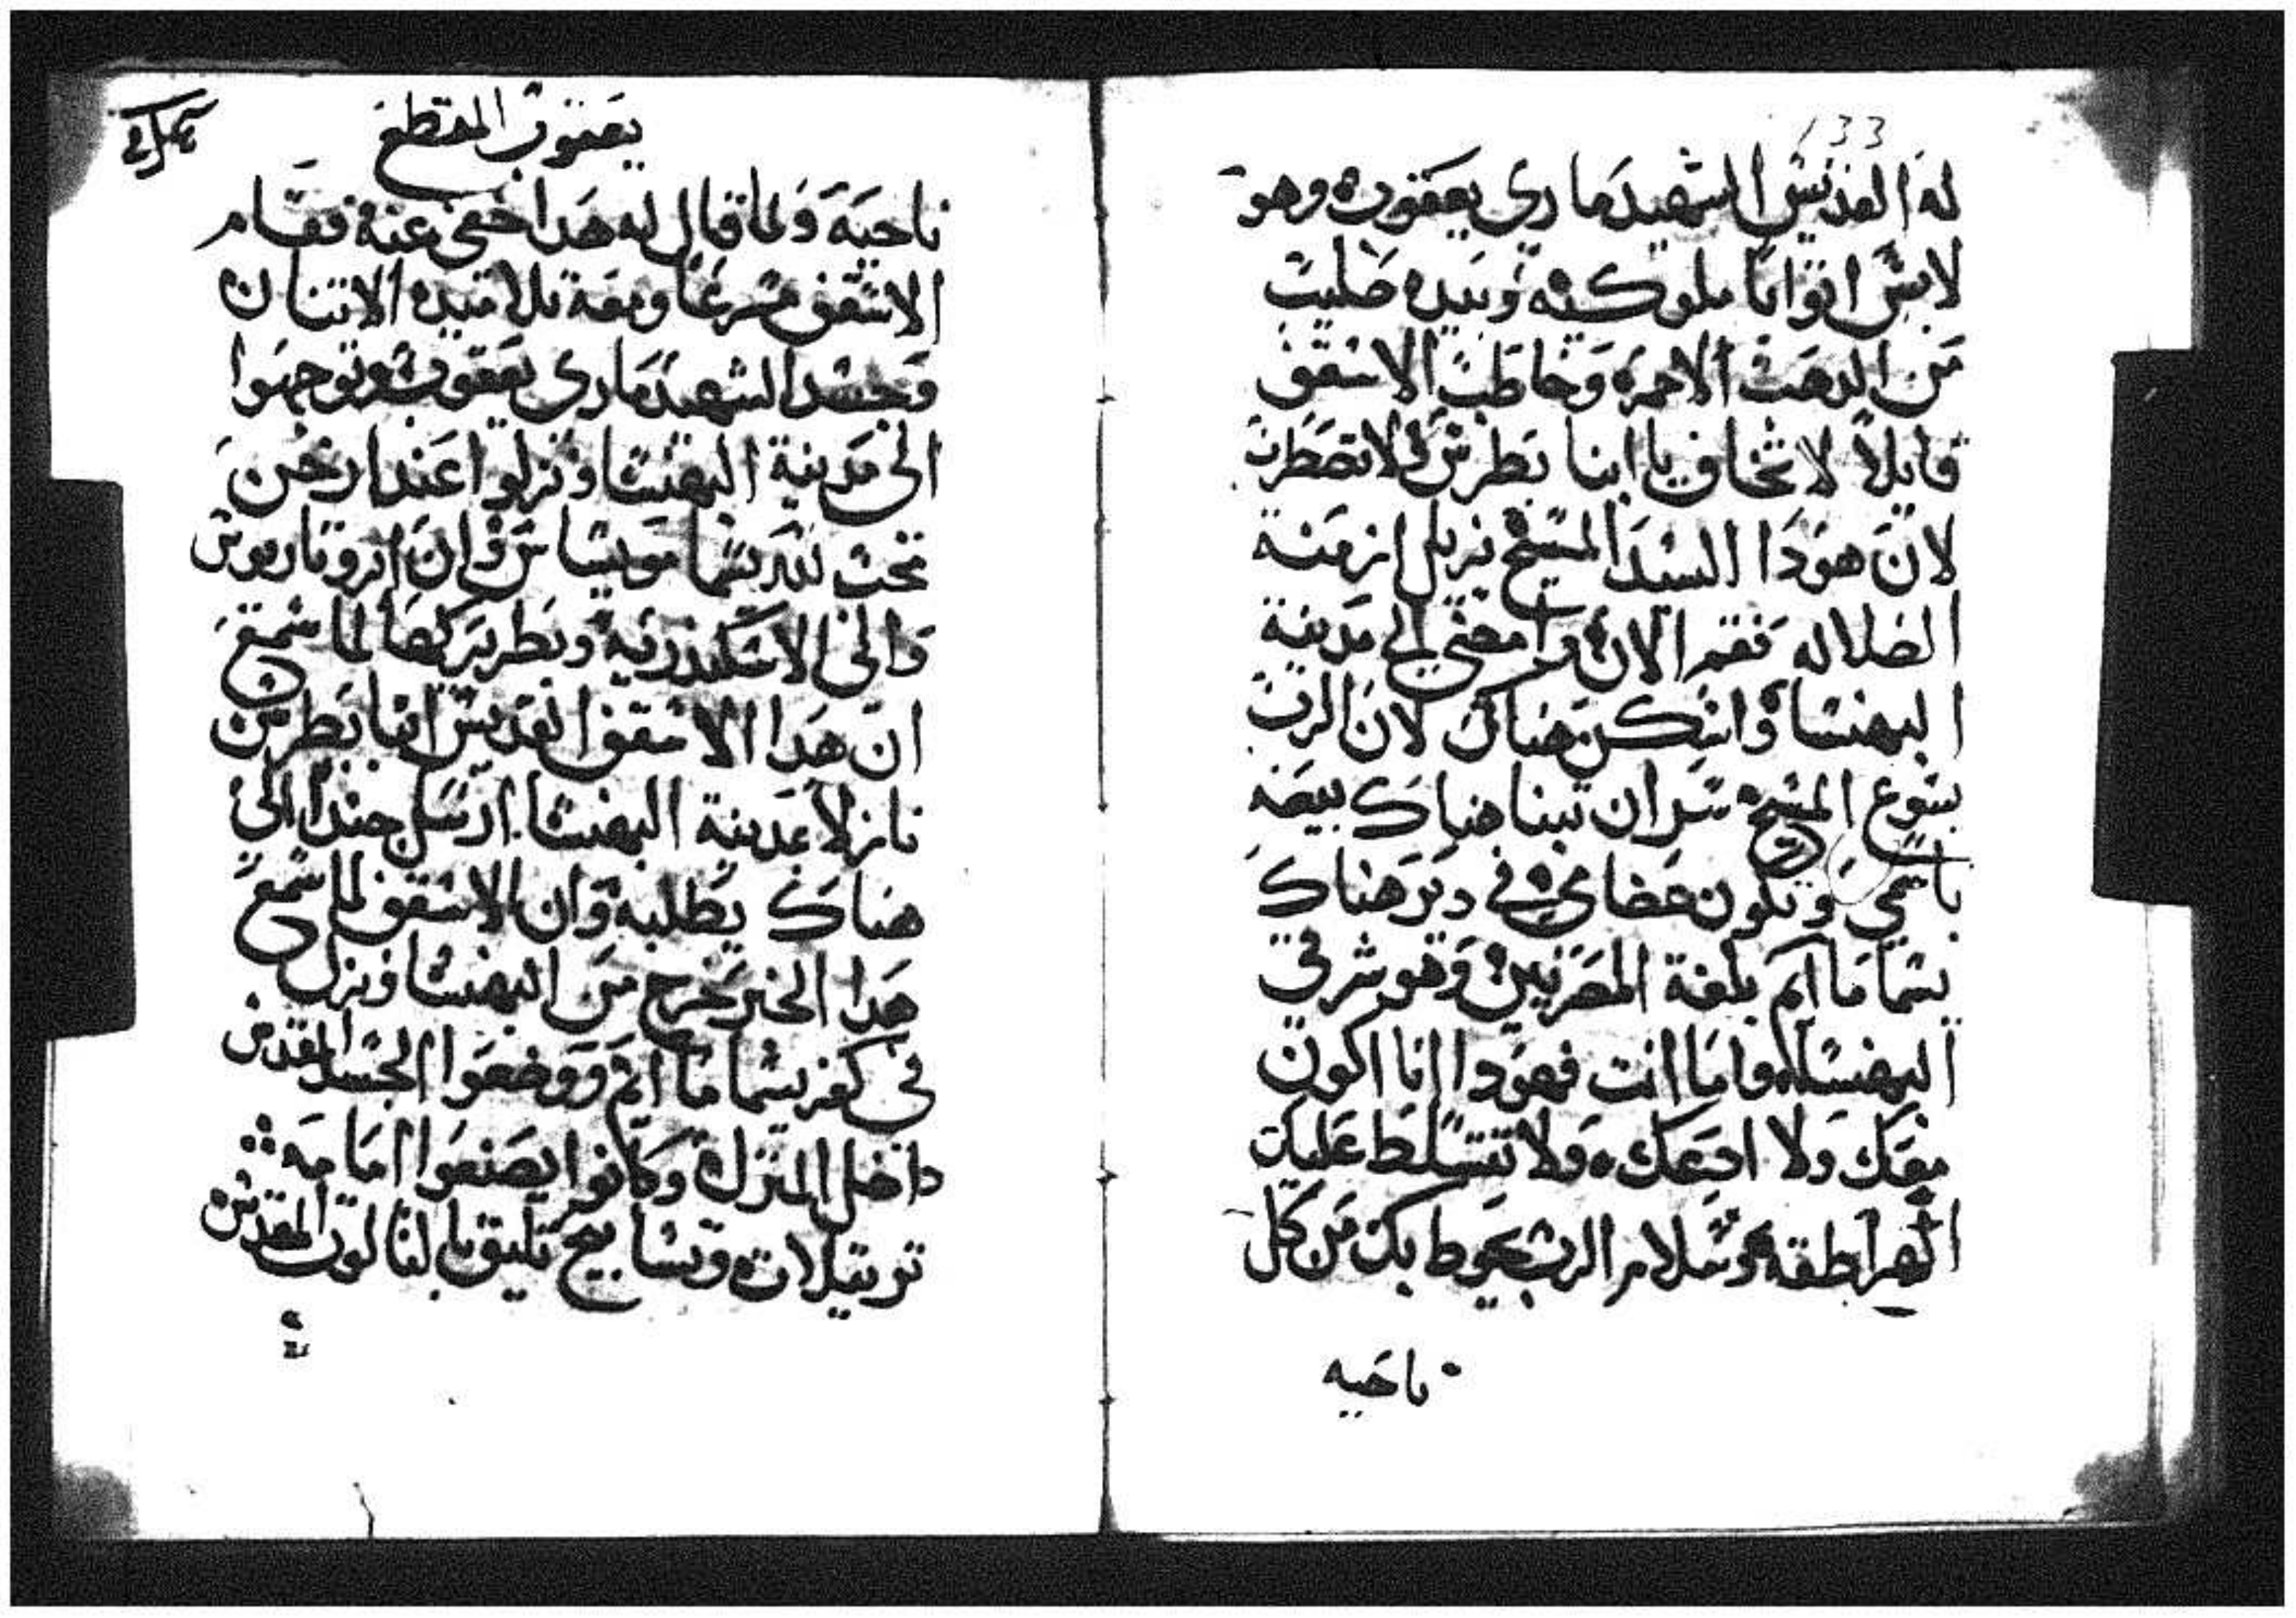 133
له القديس الشهيد ماري يعقوب وهو
لابس اتوابا ملوكيه وبيده صليب
من الدهب الاحمر وخاطب الاسقف
قايلاً لا تخاف يا ابنا بطرس لا تضطرب
لان هودا السيد المسيح يزيل ازمنة
الضلاله فقم الان وامضي الي مدينة
البهنسا واسكن هناك لان الرب
يسوع المسيح سر ان تبنا هناك بيعه
باسمي وتكون عضامي في دير هناك
يسما مايم بلغة المصريين وهو شرقي
البهنسا واما انت فهودا انا اكون
معك ولا ادعك ولا تتسلط عليك
الهراطقة وسلام الرب يحوط بك من كل
ناحيه
يعقوب المقطع
ناحية ولما قال له هدا اختفي عنه فقام
الاسقف مسرعا ومعه تلاميده الاتنان
وجسد الشهيد ماري يعقوب وتوجهوا
الى مدينة البهنسا ونزلوا عند ارخن
تحت يسما موسيا وان
والي الاسكندريه وبطريركها لما سمع
ان هدا الاسقف القديس انبا بطرس
نازلاً بمدينة البهنسا ارسل جنداً الى
هناك يطلبه وان الاسقف لما سمع
هدا الخبر خرج من البهنسا ونزل
في كفر يسما مايم ووضعوا الجسد المقدس
داخل المنزل وكانوا يصنعوا امامه
ترتيلات وتسابيح تليق بالتالوت المقدس